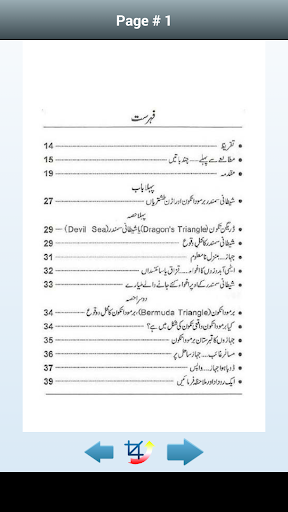 Page # 1
فہرست
تقریظ 14
مطالعے سے پہلے.... چند باتیں 15
مقدمہ 19
پہلا باب
شیطانی سمندر، برمودا تکون اور اڑن طشتریاں 27
پہلا حصہ
ڈریگن تکون (Dragon's Triangle) یا شیطانی سمندر (Devil Sea) 29
شیطانی سمندر کا محل وقوع 29
جہاز... منزل نامعلوم 31
ایٹمی آبدوزوں کا اغواء.... قزاق یا سائنسداں 32
شیطانی سمندر کے اوپر اغواء کئے جانے والے طیارے 33
دوسرا حصہ
برمودا تکون (Bermuda Triangle)، برمودا تکون کا محل وقوع 34
کیا برمودا تکون واقعی تکون کی شکل میں ہے؟ 34
جہازوں کا قبرستان برمودا تکون 35
مسافر غائب.... جہاز ساحل پر 36
ڈوبا ہوا جہاز.... واپس 37
ایک روداد اور ملاحظہ فرمائیں 39